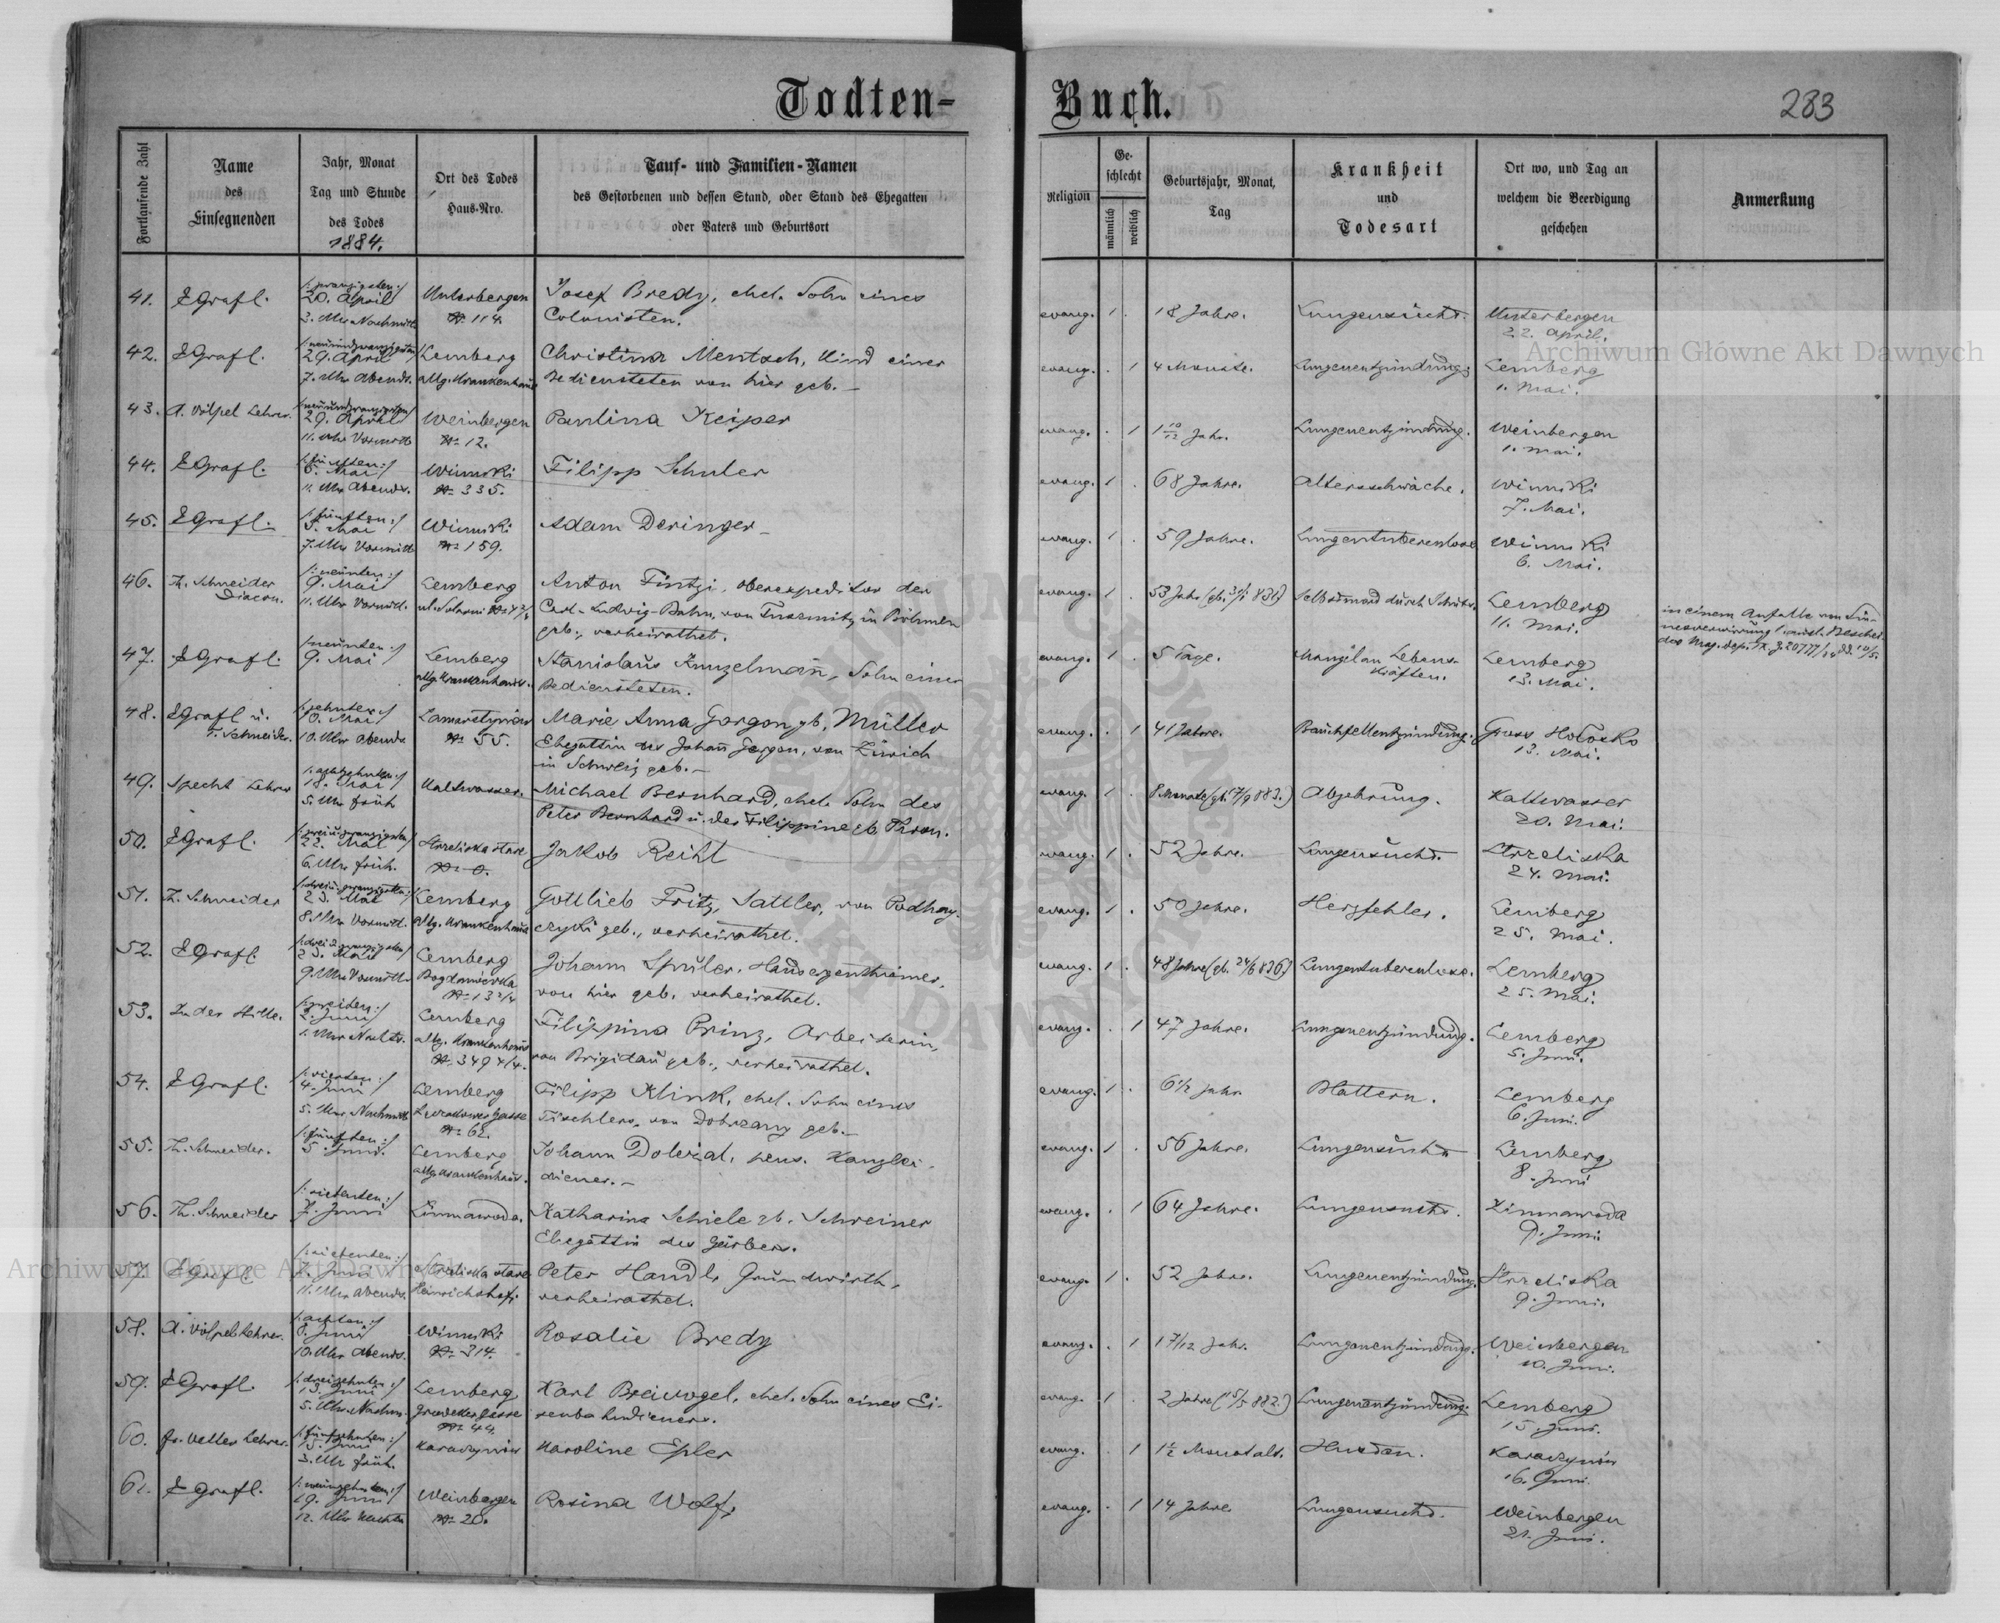 Todten-
Buch.
283
Fortlaufende Zahl
Name
des
Einsegnenden
Jahr, Monat
Tag und Stunde
des Todes
1884.
Ort des Todes
Haus-Nro.
Tauf- und Familien-Namen
des Gestorbenen und dessen Stand, oder Stand des Ehegatten
oder Vaters und Geburtsort
Religion
Ge-
schlecht
männlich
weiblich
Geburtsjahr, Monat,
Tag
Krankheit
und
Todesart
Ort wo, und Tag an
welchem die Beerdigung
geschehen
Anmerkung
41. EGrafl. 20. April Unterbergen Josef Bredy, ehel. Sohn eines evang. 1 . 18 Jahre. Lungensucht. Unterbergen
3. Uhr Nachmitt. № 114. Colonisten. 22. April.
42. EGrafl. 29. April Lemberg Christina Mentsch, Kind einer evang. . 1 4 Monate. Lungenentzündung. Lemberg
7. Uhr Abends. allg. Krankenhaus Bediensteten von hier geb. — 1. Mai.
43. A. Völpel Lehrer. 29. April Weinbergen Paulina Keiper evang. . 1 1 10/12 Jahr. Lungenentzündung. Weinbergen
11. Uhr Vormitt. № 12. 1. Mai.
44. EGrafl. Mai Winniki Filipp Schuler evang. 1 . 68 Jahre. Altersschwäche. Winniki
11. Uhr Abends. № 335. 7. Mai.
45. EGrafl. /:fünften:/ 5. Mai Winniki Adam Deringer — evang. 1 . 59 Jahre. Lungentuberculose Winniki
7. Uhr Vormitt. № 159. 6. Mai.
46. Th. Schneider /:neunten:/ 9. Mai Lemberg Anton Oberexpeditor der evang. 1 . 53 Jahr Selbstmord durch Lemberg
Diacon. 11. Uhr Vormitt. Carl-Ludwig-Bahn, von in Böhmen 11. Mai.
geb., verheirathet. in einem Anfalle von Sin-
nesverwirrung
47. EGrafl. /:neunten:/ 9. Mai Lemberg Stanislaus Kunzelmann, Sohn einer evang. 1 . 5 Tage. Mangel an Lebens- Lemberg
allg. Krankenhaus. Bediensteten. kräften. 13. Mai.
48. EGrafl u. /:zehnten:/ 10. Mai Marie Anna Gorgon gb. Müller evang. . 1 41 Jahre. Bauchfellentzündung. Gross Hołosko
T. Schneider. 10. Uhr Abends № 55. Ehegattin des Johann Gorgon, von Zürich 13. Mai.
in Schweiz geb. —
49. Specht Lehrer /:achtzehnten:/ 18. Mai Kaltwasser. Michael Bernhard, ehel. Sohn des evang. 1 . 8 Monate Abzehrung. Kaltwasser
5. Uhr früh Peter Bernhard u. der Filippine gb. 20. Mai.
50. EGrafl. 22. Mai Strzeliska stare Jakob Reihl evang. 1 . 52 Jahre. Lungensucht. Strzeliska
6. Uhr früh. № 0. 24. Mai.
51. Th. Schneider 23. Mai Lemberg Gottlieb Fritz, Sattler, von Podhay- evang. 1 . 50 Jahre. Herzfehler. Lemberg
8. Uhr Vormitt. allg. Krankenhaus czyki geb., verheirathet. 25. Mai.
52. EGrafl. 23. Mai Lemberg Johann Spuler, Hauseigenthümer, evang. 1 . 48 Jahre (gb. 24/6 836) Lungentuberculose. Lemberg
9. Uhr Vormitt. Bogdanówka von hier geb. verheirathet. 25. Mai.
53. In der Stille. /:zweiten:/ 2. Juni Lemberg Filippina Prinz, Arbeiterin, evang. . 1 47 Jahre. Lungenentzündung. Lemberg
1. Uhr Nachts. allg. Krankenhaus von Brigidau geb., verheirathet. 5. Juni.
№ 349 4/4.
54. EGrafl. /:vierten:/ 4. Juni Lemberg Filipp Klink, ehel. Sohn eines evang. 1 . 6 1/2 Jahr Blattern. Lemberg
5. Uhr Nachmitt. № 62. Tischlers, von Dobrzany geb. — 6. Juni.
55. Th. Schneider. /:fünften:/ 5. Juni. Lemberg Johann Doleżal, pens. Kanzlei- evang. 1 . 56 Jahre. Lungensucht Lemberg
allg. Krankenhaus. diener. — 8. Juni
56. Th. Schneider /:siebenten:/ 7. Juni Zimnawoda. Katharina Schiele gb. Schreiner evang. . 1 64 Jahre. Lungensucht. Zimnawoda
Ehegattin des Gärbers. 9. Juni
57. EGrafl. /:siebenten:/ 7. Juni Strzeliska stare Peter Handl, Grundwirth, evang. 1 . 52 Jahre. Lungenentzündung. Strzeliska
11. Uhr Abends. Heinrichshof. verheirathet. 9. Juni.
58. A. Völpel Lehrer. /:achten:/ 8. Juni Winniki Rosalie Bredy evang. . 1 1 7/12 Jahr. Lungenentzündung. Weinbergen
10. Uhr Abends. № 314. 10. Juni.
59. EGrafl. /:dreizehnten:/ 13. Juni Lemberg Karl Breivogel, ehel. Sohn eines Ei- evang. 1 . 2 Jahre (15/5 882.) Lungenentzündung. Lemberg
5. Uhr Nachm. Grodeker Gasse senbahndieners. 15. Juni.
№ 44.
60. Fr. Velter Lehrer. /:fünfzehnten:/ 15. Juni Karaczynów Karoline Epler evang. . 1 1 1/2 Monat alt. Husten. Karaczynów
3. Uhr früh. 16. Juni.
61. EGrafl. /:neunzehnten:/ 19. Juni Weinbergen Rosina Wolf. evang. . 1 14 Jahre Lungensucht. Weinbergen
12. Uhr Nachts № 20. 21. Juni.
Archiwum Główne Akt Dawnych
Archiwum Główne Akt Dawnych